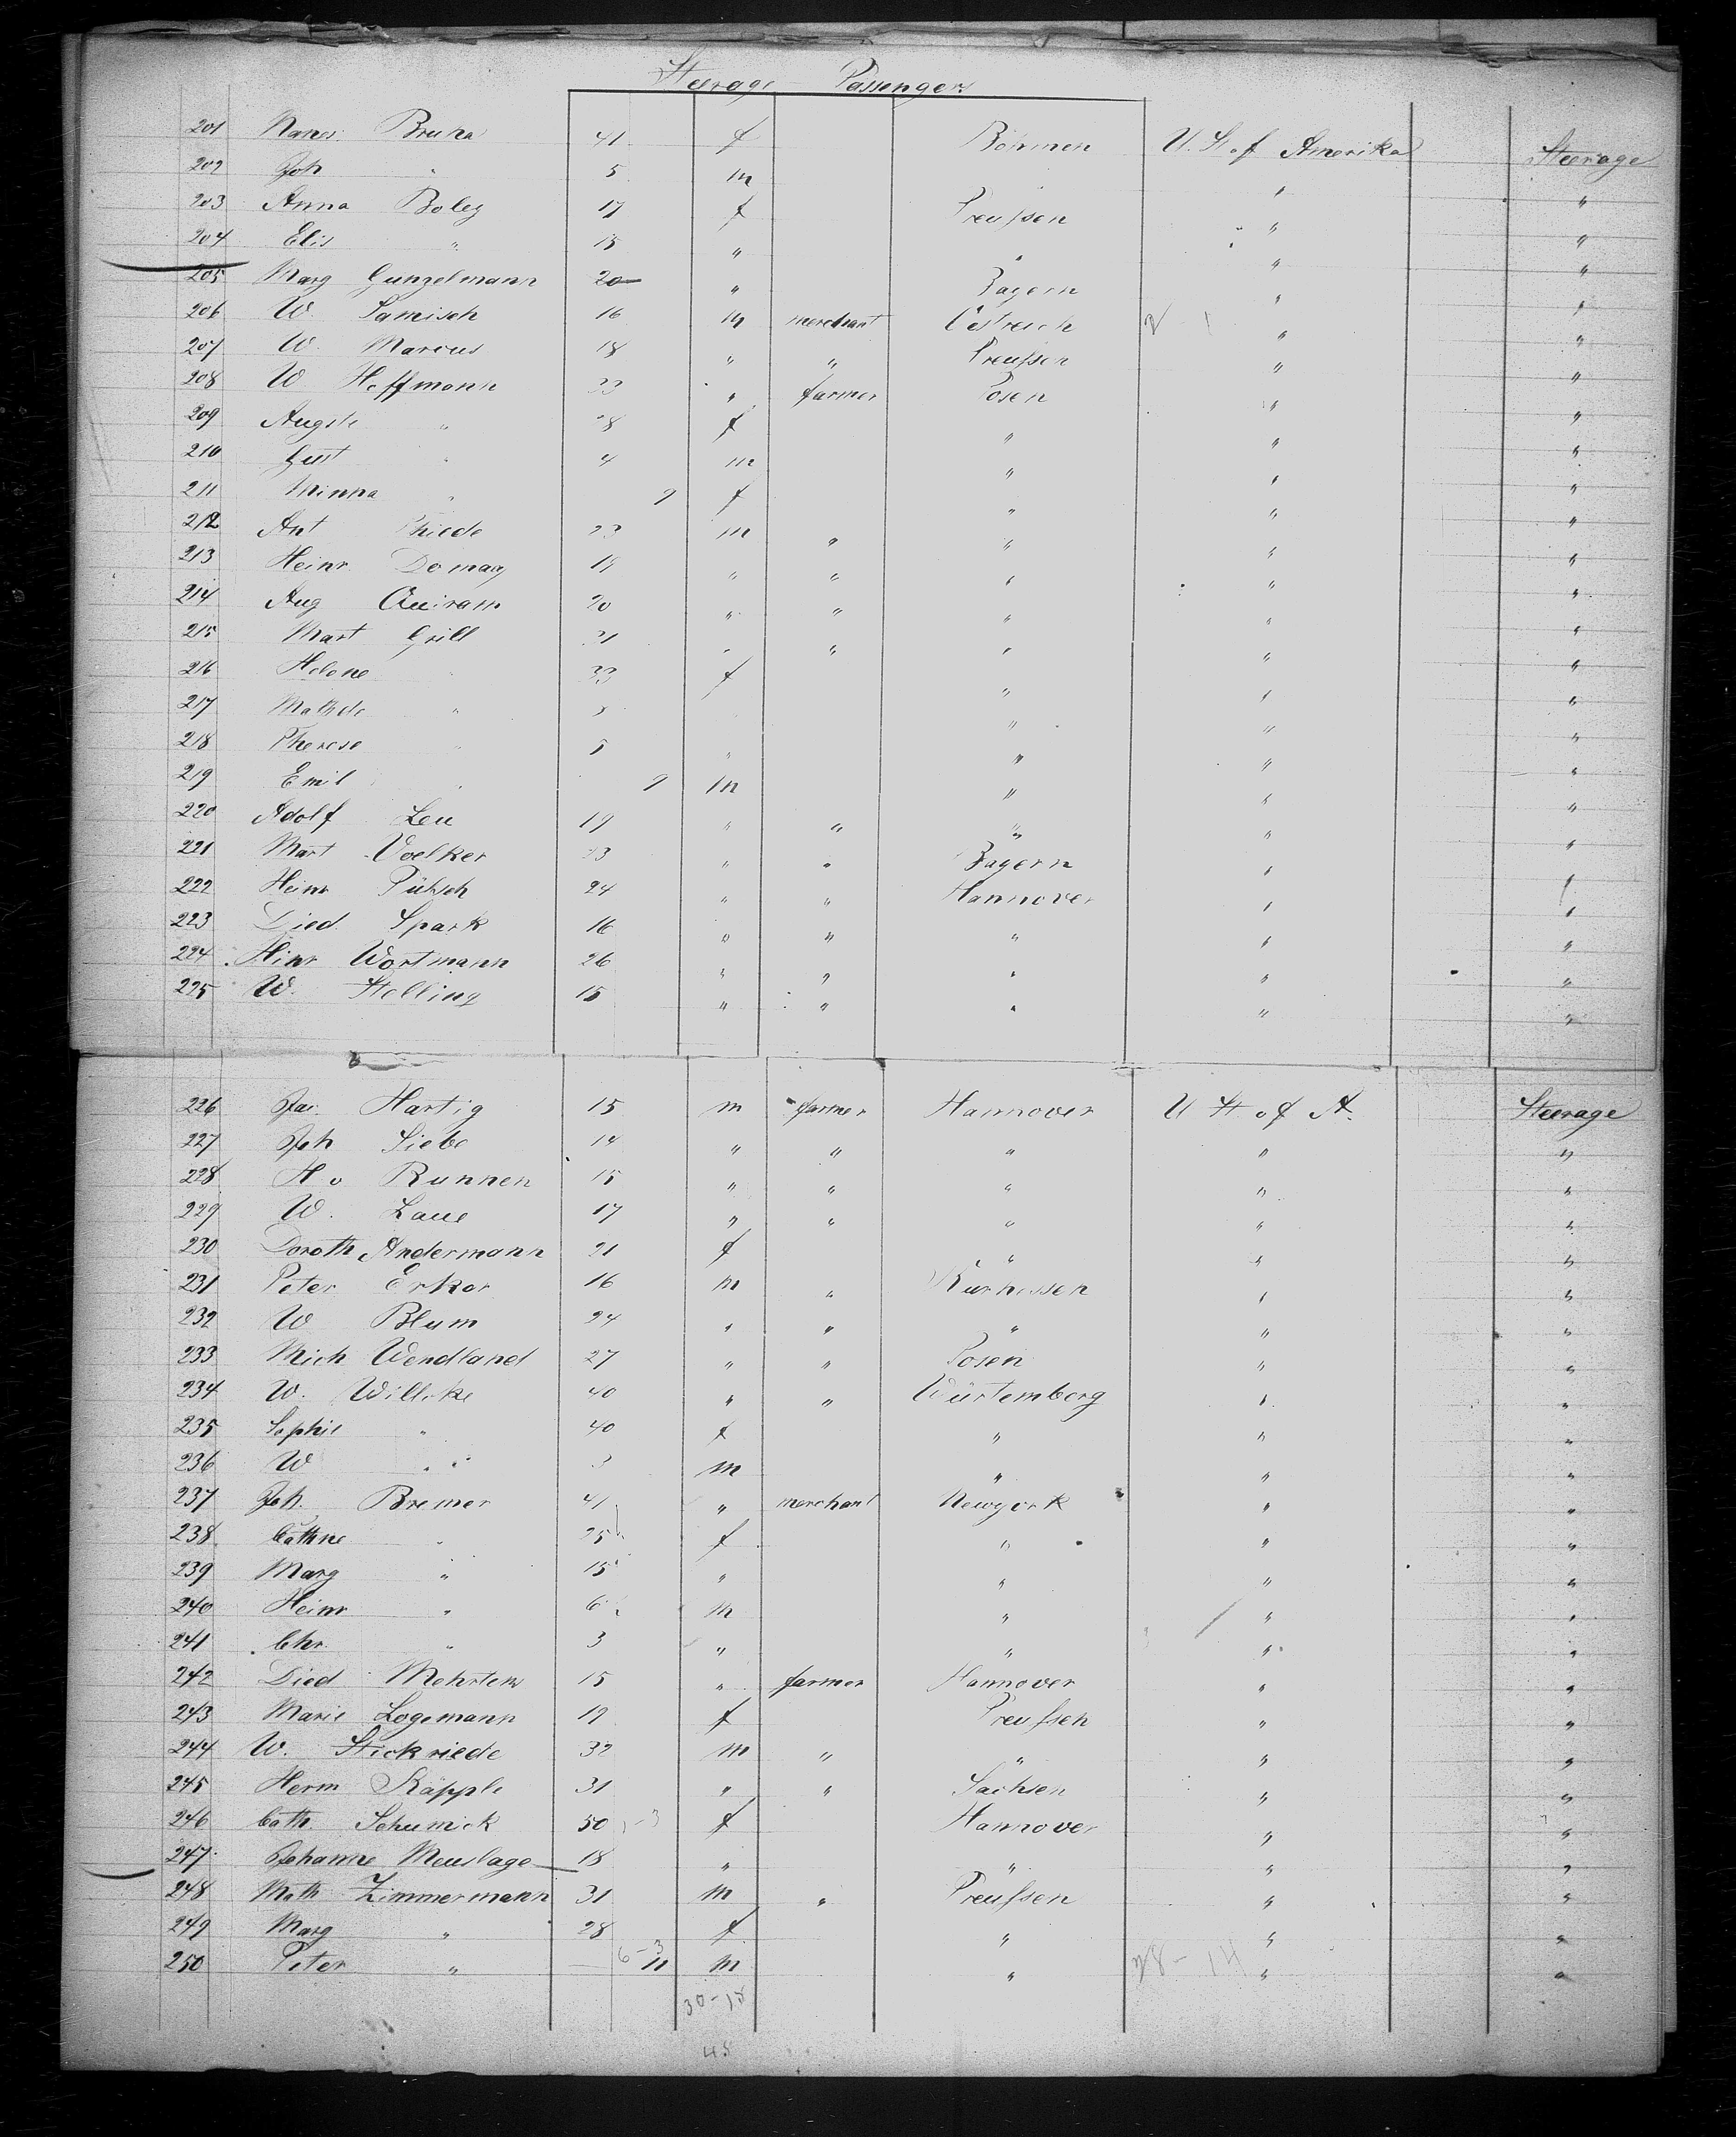 Steerage Passengers
201 Bruha 41 f Böhmen U. St. of Amerika Steerage
202 Joh " 5 m " " "
203 Anna Boley 17 f Preußen " "
204 Elis " 15 " " " "
205 Marg Gunzelmann 20 " Bayern " "
206 W Samisch 16 m merchant Östreich " "
207 W. Marcus 18 " " Preußen " "
208 W Hoffmann 33 " farmer Posen " "
209 Auguste " 28 f " " "
210 Gust " 4 m " " "
211 Minna " 9 f " " "
212 Ant Thiede 23 m " " " "
213 Heinr. Domay " " " " "
214 Aug Quiram 20 " " " " "
215 Mart Grill 31 " " " " "
216 Helene " 33 f " " "
217 " " " "
218 Therese " 5 " " " "
219 Emil " 9 m " " "
220 Adolf Leu 19 " " " " "
221 Mart Voelker 23 " " Bayern " "
222 Heinr 24 " " Hannover " "
223 Died. Spark 16 " " " " "
224 Hinr Wortmann 26 " " " " "
225 W. Stelling 15 " " " " "
226 Hartig 15 m farmer Hannover U St of A. Steerage
227 Joh Siebe 14 " " " " "
228 H v Runnen 15 " " " " "
229 W. Laue 17 " " " " "
230 Doroth Andermann 21 f " " "
231 Peter Erker 16 m " Kurhessen " "
232 W Blum 24 " " " " "
233 Mich Wendland 27 " " Posen " "
234 W. Willeke 40 " " Würtemberg " "
235 Sophie " 40 f " " "
236 W " 3 m " " "
237 Joh. Bremer 41 " merchant Newyork " "
238 Cathne " 25 f " " "
239 Marg " 15 " " " "
240 Heinr " 6 m " " "
241 Chr. " 3 " " " "
242 Died Mehrtens 15 " farmer Hannover " "
243 Marie Logemann 19 f Preußen " "
244 W. Stickriede 32 m " " " "
245 Herm Käpple 31 " " Sachsen " "
246 Cath. Schumick 50 f Hannover " "
247 Johanne Menslage 18 " " " "
248 Math Zimmermann 31 m " Preußen " "
249 Marg " 28 f " " "
250 Peter " — 6-3 11 m " 28-14 " "
30-15
45